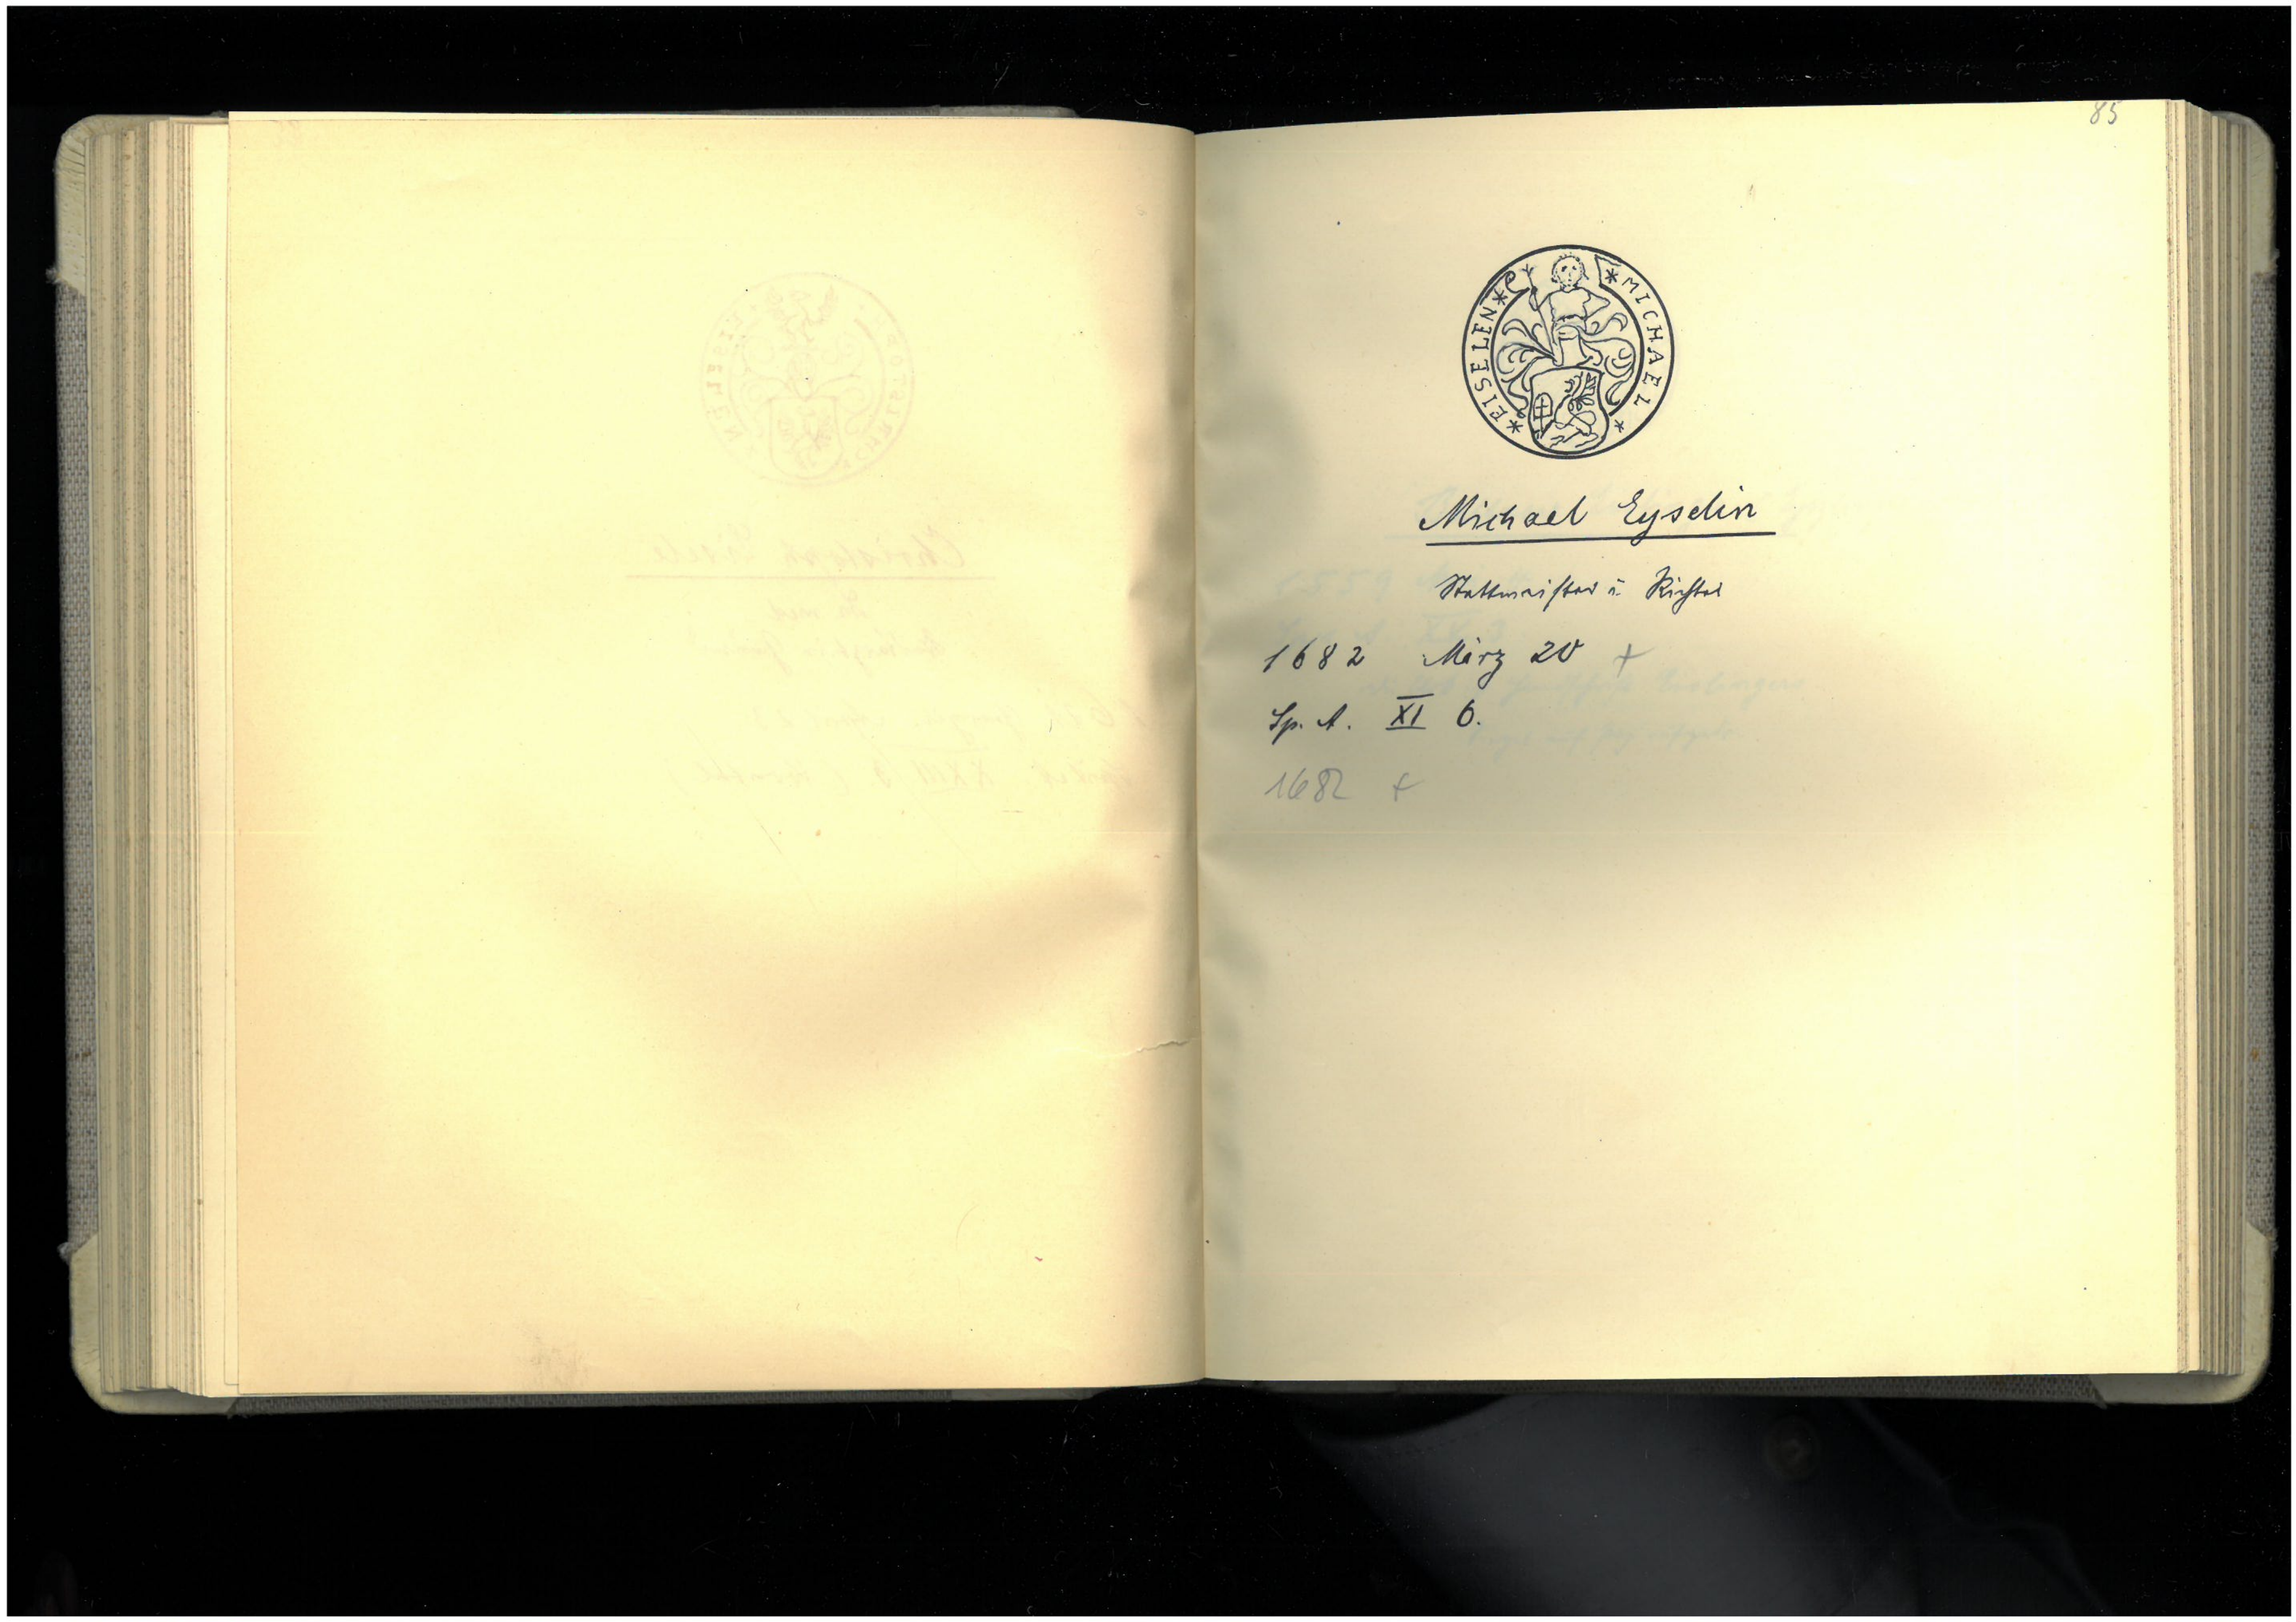 85
* MICHAEL * * EISELEN *
Michael Eyselin
Stattmeister u. Richter
1682 März 20 +
Sp. A. XI 6.
1682 +